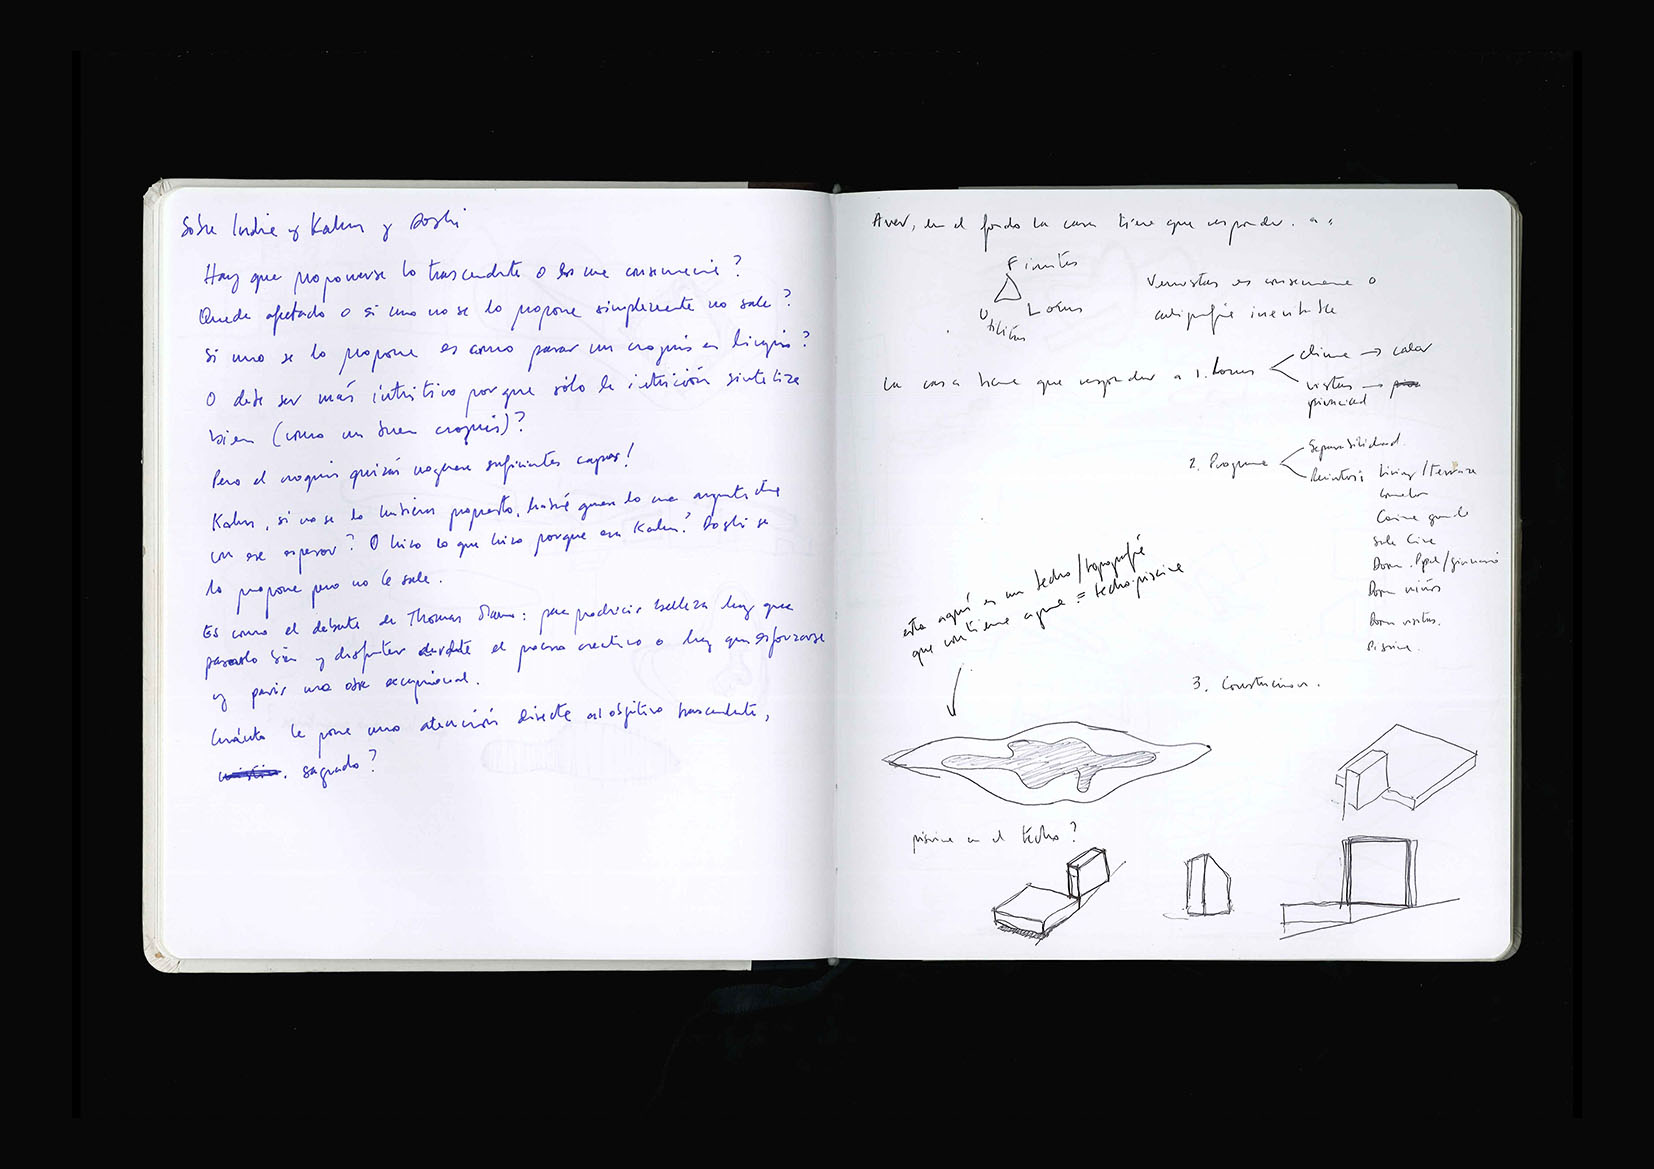 Sobre India y Kahn y Doshi
Hay que proponerse lo trascendente o es una consecuencia?
Queda afectado o si uno no se lo propone simplemente no sale?
Si uno se lo propone es como pasar un croquis en limpio?
O debe ser más intuitivo porque sólo la intuición sintetiza
bien (como un buen croquis)?
Pero el croquis quizás no genere suficientes capas!
Kahn, si no se lo hubiera propuesto, habría quedado una
con ese espesor? O hizo lo que hizo porque era Kahn? Doshi se
lo propone pero no le sale.
Es como el debate de Thomas Mann: para producir belleza hay que
pasarlo bien y disfrutar durante el proceso creativo o hay que esforzarse
y parir una obra excepcional.
Cuánta le pone uno atención directa al objetivo trascendente,
sagrado?
A ver, en el fondo la casa tiene que responder a:
Firmitas
Utilitas
Locus
Venustas es consecuencia o
caligrafía inevitable
La casa tiene que responder a 1. Locus
clima → calor
vistas →
privacidad
2. Programa
Separabilidad
Recintos: Living/terraza
Comedor
Cocina grande
Sala Cine
Dorm. Ppal/gimnasio
Dorm niños
Dorm visitas.
Piscina.
3. Construcción.
esto aquí es un techo/topografía
que contiene agua = techo-piscina
piscina en el techo?